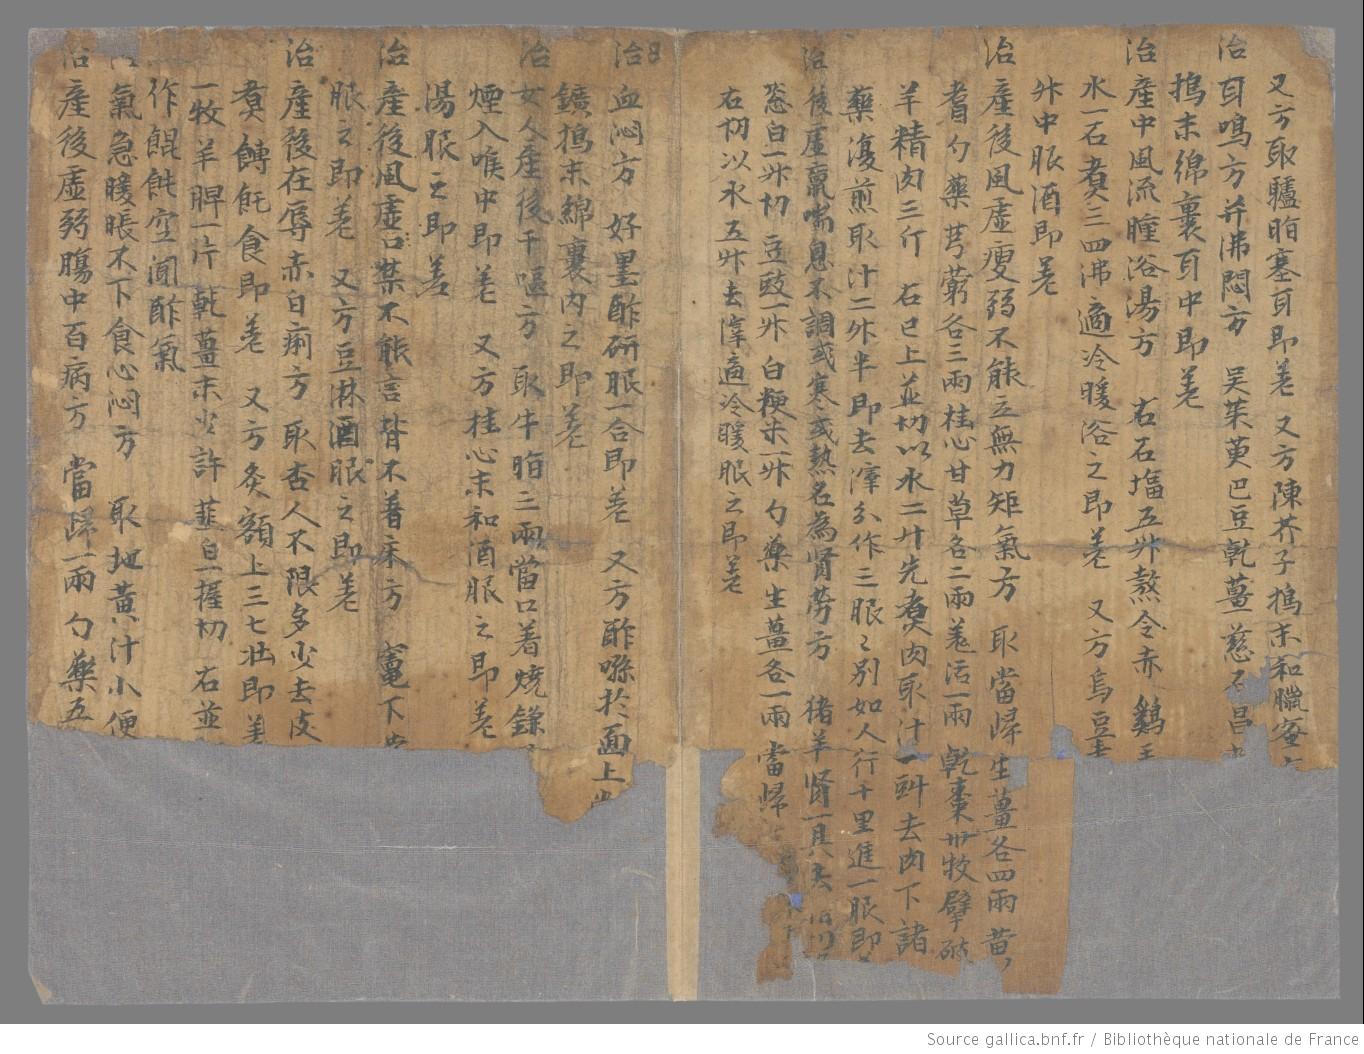 又方取驢脂塞耳即差 又方陳芥子搗末和臘蜜
治耳鳴方并沸悶方 吴茱萸巴豆乾薑慈石昌
搗末綿裹耳中即差
治産中風流瞳浴湯方 右石塩五升熬令赤 鷄
水一石煮三四沸適冷暖浴之即差 又方烏豆
升中服酒即差
治産後風虛瘦弱不能立無力矩氣方 取當歸生薑各四兩黄
耆勺藥芎藭各三兩桂心甘草各二兩羌活一兩 乾棗卅牧擘破
羊精肉三斤 右已上並切以水二升先煑肉取汁一㪷去肉下諸
藥復煎取汁二升半即去滓分作三服〻別如人行十里進一服即
治後虛羸喘息不調或寒或熱名為腎勞方 猪羊腎一具去
葱白一升切 豆豉一升 白粳米一升 勺藥生薑各一兩 當歸
右切以水五升去滓適冷暖服之即差
治血悶方 好墨酢研服一合即差 又方酢噀於面上
鑛搗末綿裹内之即差
治女人産後干嘔方 取牛脂三兩當口著燒鎌
煙入喉中即差 又方桂心末和酒服之即差
湯服之即差
治産後風虛口禁不能言皆不著床方 竃下
服之即差 又方豆淋酒服之即差
治産後在辱赤白痢方 取杏人不限多少去皮
煑餺飥食即差 又方灸額上三七壯即差
一牧羊脾一片 乾薑末少許 薤白一握切 右並
作餛飩空䐃酢氣
氣急暖脹不下食心悶方 取地黄汁小便
治産後虛弱膓中百病方 當歸一兩 勺藥五
Source gallica.bnf.fr / Bibliothèque nationale de France